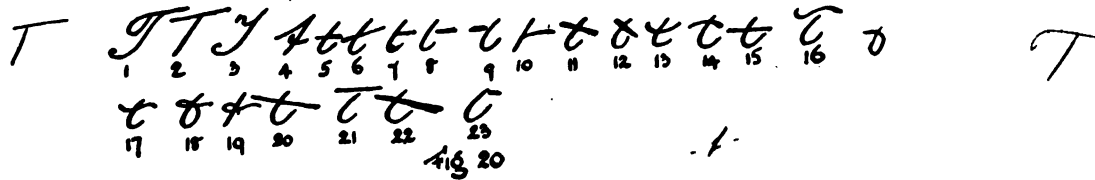 T T T T t t t t t t t t t t t t t t T
1 2 3 4 5 6 7 8 9 10 11 12 13 14 15 16
t t t t t t t
17 18 19 20 21 22 23
Fig 20